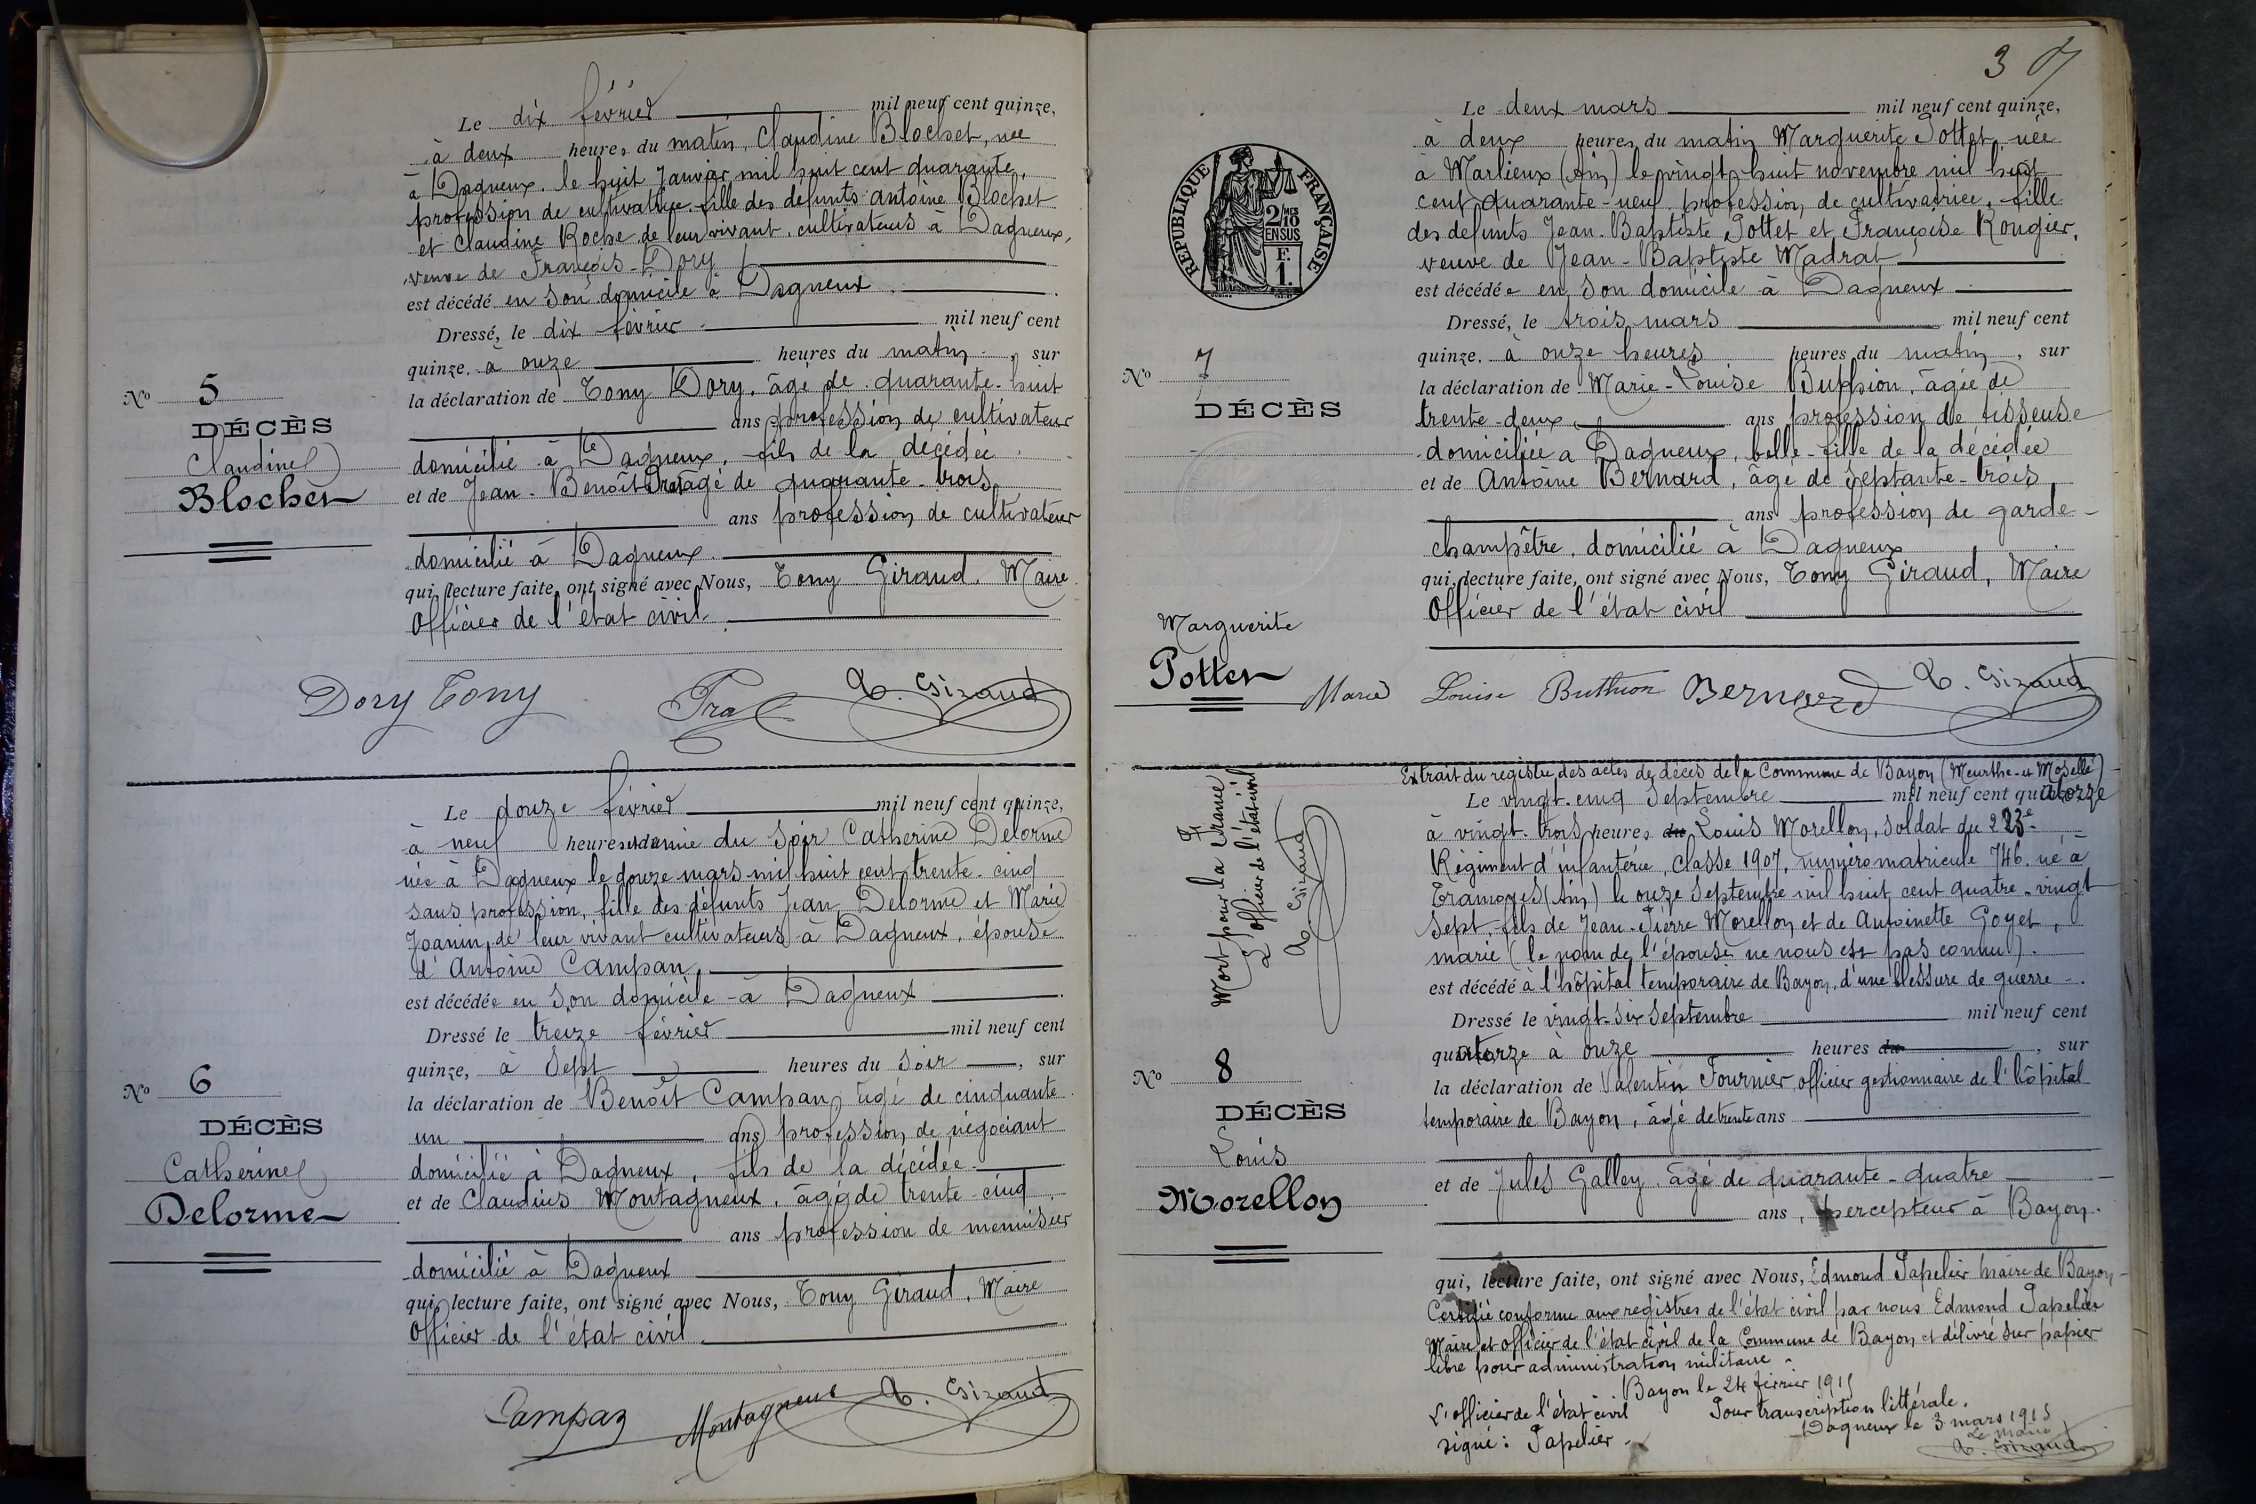 Le dix février mil neuf cent quinze,
à deux heures du matin, Claudine Blochet, née
à Dagneux, le huit Janvier mil huit cent quarante,
profession de cultivatrice, fille des défunts antoine Blochet
et Claudine Roche de leur vivant, cultivateurs à Dagneux,
veuve de François Dory
est décédé en son domicile à Dagneux.
Dressé, le dix février mil neuf cent
quinze, à onze heures du matin, sur
la déclaration de Tony Dory, âgé de quarante-huit
ans profession de cultivateur
domicilié à Dagneux, fils de la décédée
et de Jean-Benoît Prat âgé de quarante-trois
ans profession de cultivateur
domicilié à Dagneux.
qui, lecture faite, ont signé avec Nous, Tony Giraud, Maire
Officier de l'état civil.
No 5
DÉCÈS
Claudine
Blochet
Dory Tony Prat T. Giraud
Le douze février mil neuf cent quinze,
à neuf heures et demie du soir Catherine Delorme
née à Dagneux le douze mars mil huit cent trente-cinq
sans profession, fille des défunts Jean Delorme et Marie
Joanin, de leur vivant cultivateurs à Dagneux, épouse
d'Antoine Campan,
est décédée en son domicile à Dagneux
Dressé le treize février mil neuf cent
quinze, à sept heures du soir, sur
la déclaration de Benoît Campan, âgé de cinquante
un ans profession de négociant
domicilié à Dagneux, fils de la décédée.
et de Claudius Montagneux, âgé de trente-cinq
ans profession de menuisier
domicilié à Dagneux
qui, lecture faite, ont signé avec Nous, Tony Giraud, Maire
Officier de l'état civil
No 6
DÉCÈS
Catherine
Delorme
Campan Montagneux T. Giraud
3
RÉPUBLIQUE FRANÇAISE
2/10 MES
EN SUS
F.
1.
Le deux mars mil neuf cent quinze,
à deux heures du matin Marguerite Pottet née
à Marlieux (Ain) le vingt-huit novembre mil huit
cent quarante-neuf profession de cultivatrice, fille
des defunts Jean-Baptiste Pottet et Françoise Rougier,
veuve de Jean-Baptiste Madrat
est décédée en son domicile à Dagneux
Dressé, le trois mars mil neuf cent
quinze, à onze heures heures du matin, sur
la déclaration de Marie-Louise Buthion, âgée de
trente-deux ans profession de tisseuse
domiciliée à Dagneux, belle-fille de la décédée
et de Antoine Bernard, âgé de septante-trois
ans profession de garde-
champêtre, domicilié à Dagneux
qui, lecture faite, ont signé avec Nous, Tony Giraud, Maire
Officier de l'état civil
No 7
DÉCÈS
Marguerite
Pottet
Marie Louise Buthion Bernard T. Giraud
Extrait du registre des actes de décès de la Commune de Bayon (Meurthe-et-Moselle)
Le vingt-cinq Septembre mil neuf cent quatorze
à vingt-trois heures du Louis Morellon, soldat du 223e
Régiment d'infanterie, classe 1907, numéro matricule 746, né à
Tramoyes (Ain) le onze Septembre mil huit cent quatre-vingt
sept, fils de Jean-Pierre Morellon et de Antoinette Goyet,
marié (le nom de l'épouse ne nous est pas connu).
est décédé à l'hôpital temporaire de Bayon, d'une blessure de guerre.
Dressé le vingt-six Septembre mil neuf cent
quatorze à onze heures du, sur
la déclaration de Valentin Fournier, officier gestionnaire de l'hôpital
temporaire de Bayon, âgé de trente ans
et de Jules Galley, âgé de quarante-quatre
ans, percepteur à Bayon.
qui, lecture faite, ont signé avec Nous, Edmond Papelier maire de Bayon
Certifié conforme aux registres de l'état civil par nous Edmond Papelier
Maire et officier de l'état civil de la Commune de Bayon et délivré sur papier
libre pour administration militaire.
Bayon le 24 février 1915
L'officier de l'état civil
signé: Papelier.
Pour transcription littérale.
Dagneux le 3 mars 1915
Le maire
T. Giraud
Mort pour la France
L'officier de l'état civil
T. Giraud
No 8
DÉCÈS
Louis
Morellon